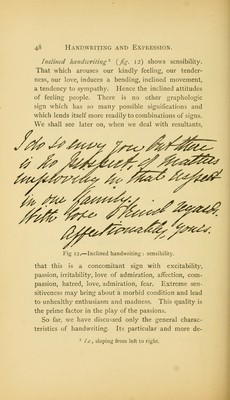 48 HANDWRITING AND EXPRESSION.
Inclined handwriting¹ (fig. 12) shows sensibility.
That which arouses our kindly feeling, our tender-
ness, our love, induces a bending, inclined movement,
a tendency to sympathy. Hence the inclined attitudes
of feeling people. There is no other graphologic
sign which has so many possible significations and
which lends itself more readily to combinations of signs.
We shall see later on, when we deal with resultants,
I do so envy you but there
is no prospect of matters
improving in that respect
in our family.
With love & kind regards.
Affectionately, yours.
Fig 12.—Inclined handwriting: sensibility.
that this is a concomitant sign with excitability,
passion, irritability, love of admiration, affection, com-
passion, hatred, love, admiration, fear. Extreme sen-
sitiveness may bring about a morbid condition and lead
to unhealthy enthusiasm and madness. This quality is
the prime factor in the play of the passions.
So far, we have discussed only the general charac-
teristics of handwriting. Its particular and more de-
¹ I.e., sloping from left to right.